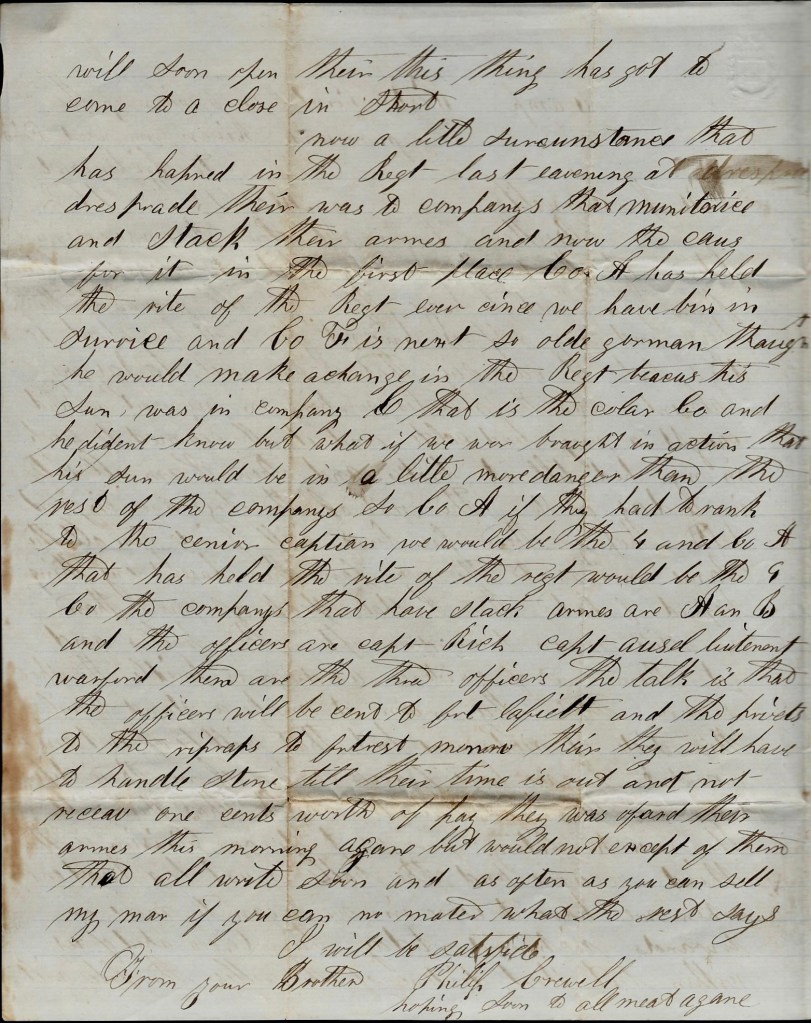 will soon open their this thing has got to
come to a close in short
now a little surcunstance that
has hapned in the Regt last eavening at
dresprade their was to companys that munitovice
and stack their armes and now the caus
for it in the first place Co. A has held
the rite of the Regt ever cince we have bin in
survice and Co F is next so olde gorman though
he would make a change in the Regt beacus his
sun was in company C that is the colar Co and
he dident know but what if we wor braught in action that
his sun would be in a little more danger than the
rest of the companys so Co A if they had to rank
to the cenior captian we would be the 4 and Co A
that has held the rite of the regt would be the 9
Co the companys that have stack armes are A an B
and the officers are capt Rich capt ausel lieutenent
warford these are the three officers the talk is that
the officers will be cent to fort lafiett and the privets
to the ripraps to fortrest monrow their they will have
to handle stone till their time is out and not
receav one cents worth of pay they was oferd their
armes this morning agane but would not except of them
that all write soon and as often as you can sell
my mar if you can no mater what the rest says
I will be satsfide
From your Brother Philip Crewell
hoping soon to all meat agane